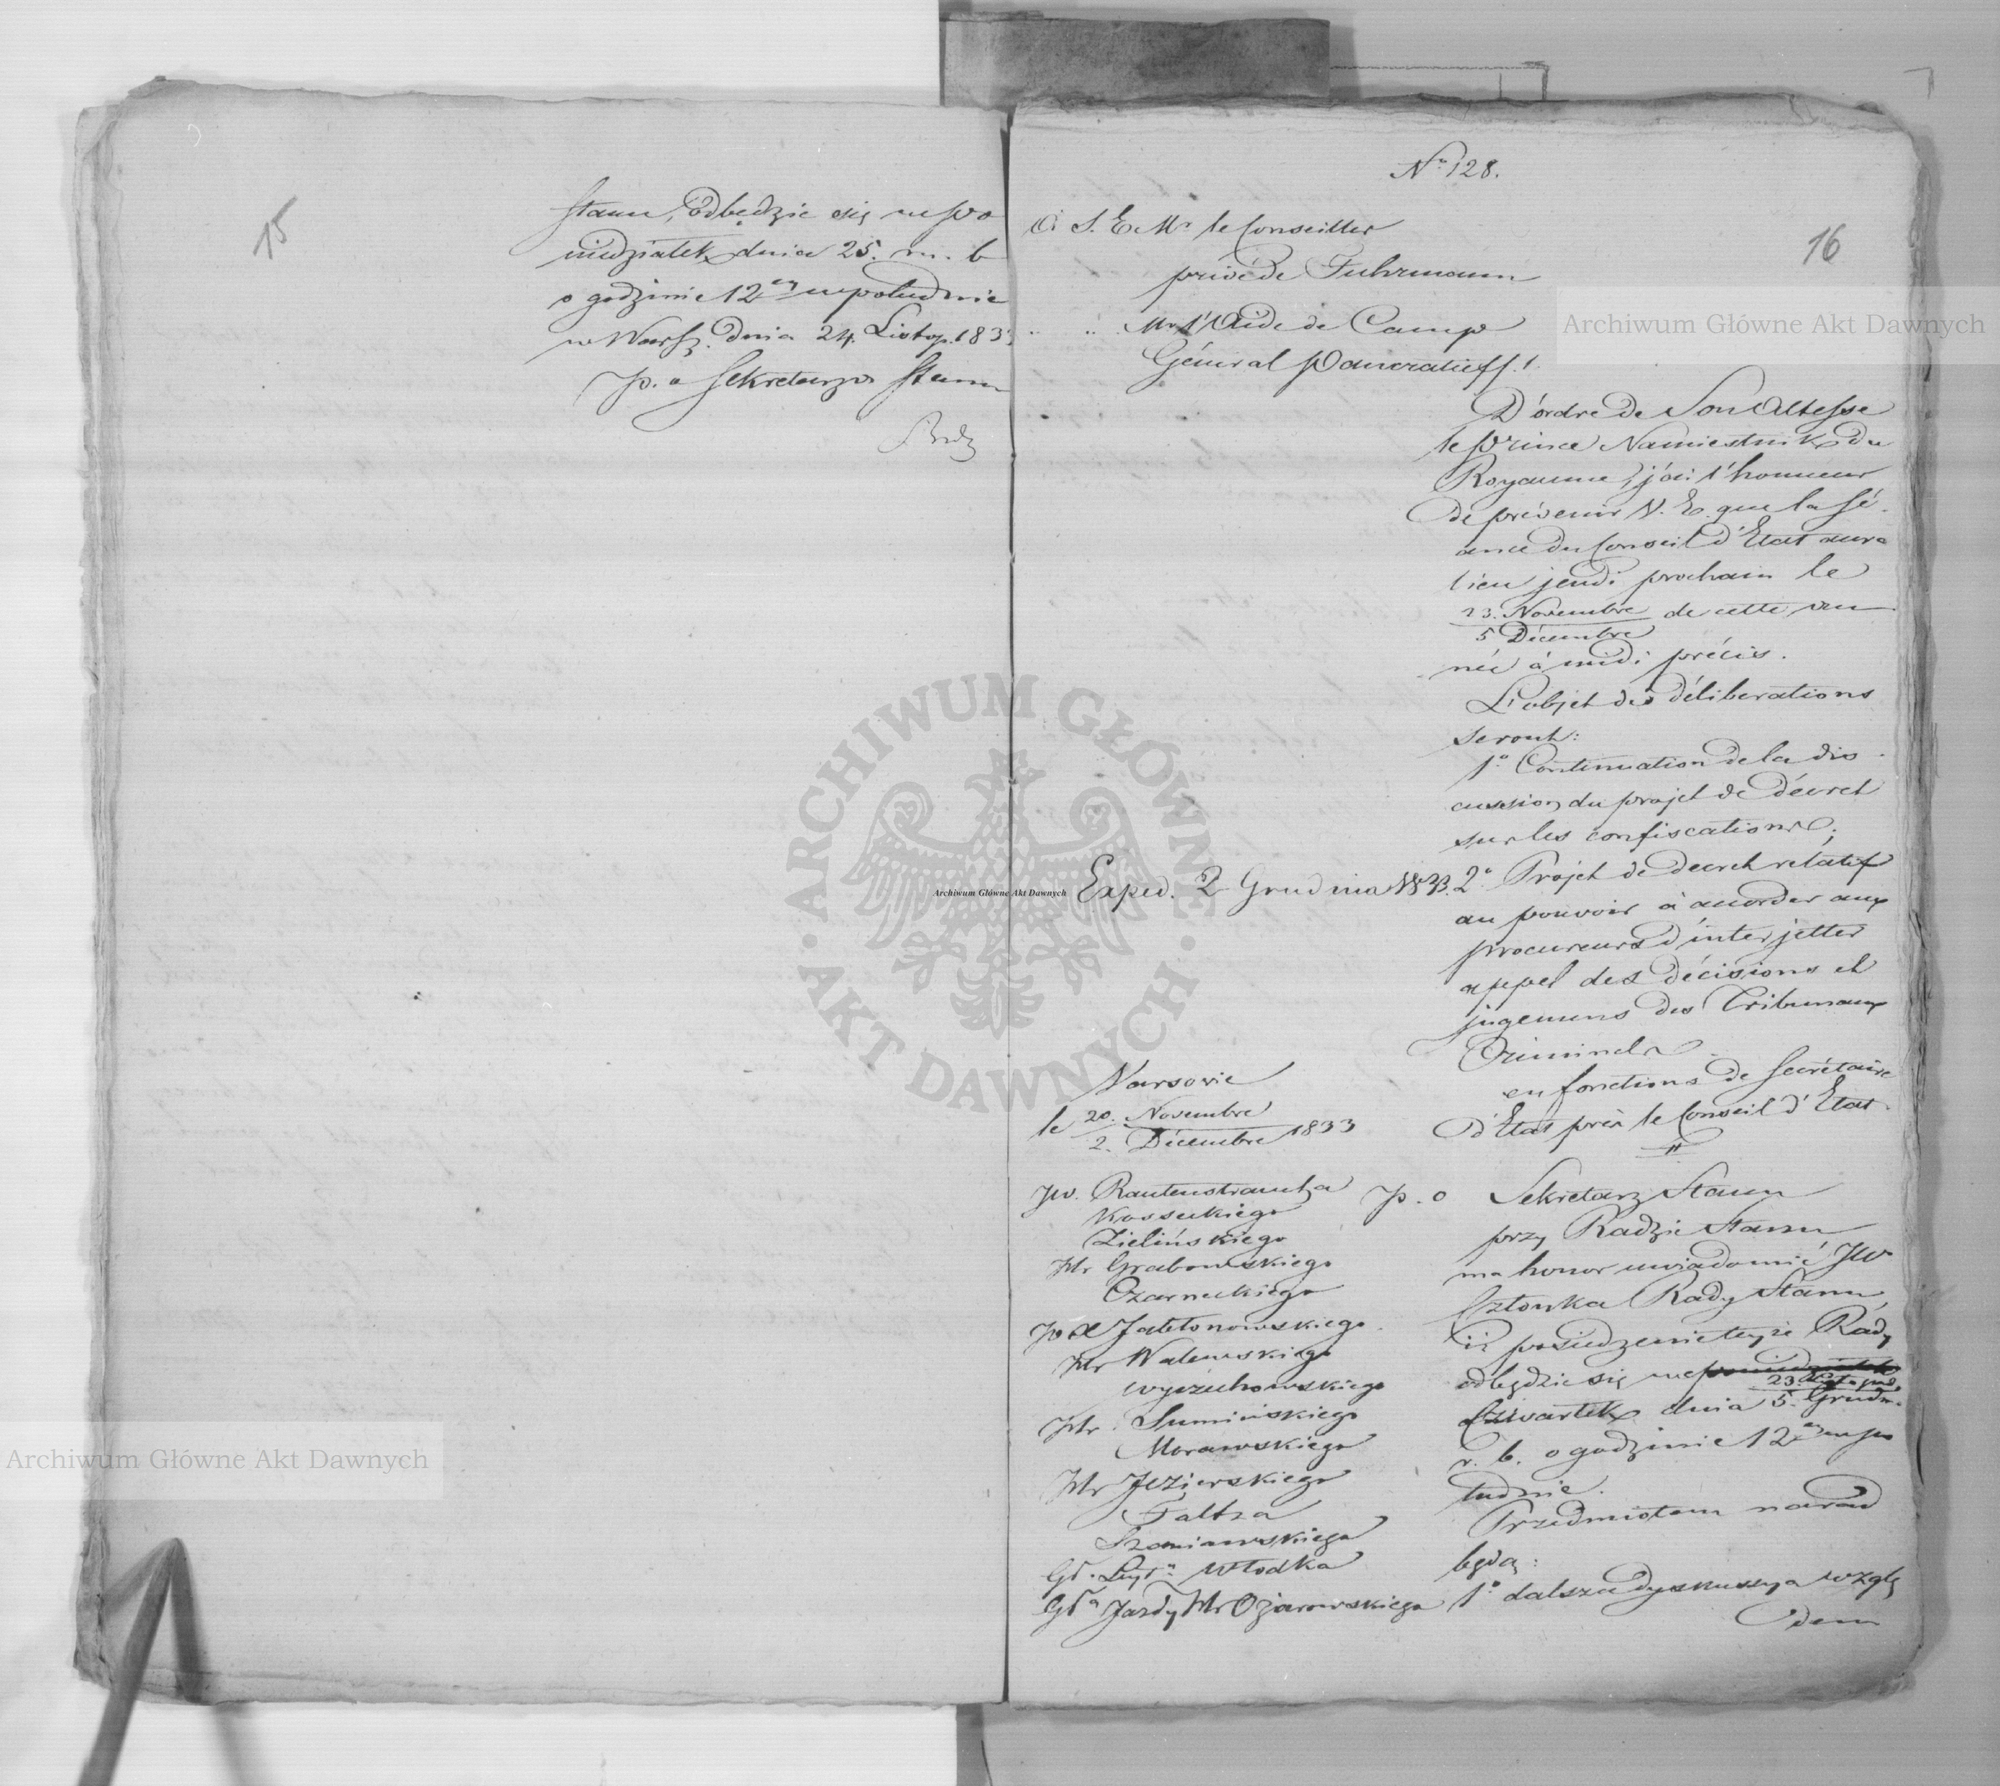 15
Stanu, odbędzie się w po
niedziałek dnia 25. m. b
o godzinie 12ey w południe
w Warsz. dnia 24. Listop. 1833
p. o Sekretarza Stanu
No 128.
16
à S. E. Mr le Conseiller
privé de Fuhrmann
" " Mr l'Aide de Camp
Général Pancratieff.
D'ordre de Son Altesse
le Prince Namiestnik du
Royaume, j'ai l'honneur
de prévenir V. E. que la sé-
ance du Conseil d'Etat aura
lieu jeudi prochain le
23. Novembre de cette an
5 Décembre
née à midi précis.
L'objet des déliberations
seront:
1o Continuation de la dis-
cussion du projet de décret
sur les confiscations;
Exped. 2 Grudnia 1833.
2o Projet de decret relatif
au pouvoir à accorder aux
procureurs d'interjetter
appel des décisions et
jugemens des Tribunaux
Criminels
en fonctions de Secrétaire
d'Etat près le Conseil d'Etat.
Varsovie
le 20. Novembre 1833
2. Décembre
JW. Rautenstraucha
Kosseckiego
Zielińskiego
Hr Grabowskiego
Czarneckiego
JO X Jabłonowskiego
Hr Walewskiego
Wyczechowskiego
Hr. Sumińskiego
Morawskiego
Hr Jezierskiego
Faltza
Szaniawskiego
Gł. Leyt. Włodka
Gła Jazdy Hr Ożarowskiego
p. o Sekretarz Stanu
przy Radzie Stanu
ma honor uwiadomić JW
Członka Rady Stanu,
iż posiedzenie teyże Rady
odbędzie się we poniedziałek
23. Listopada
Czwartek dnia 5. Grudn.
r. b. o godzinie 12ey w po
łudnie.
Przedmiotem narad
będą:
1o dalsza dyskussya wzglę
dem
Archiwum Główne Akt Dawnych
Archiwum Główne Akt Dawnych
Archiwum Główne Akt Dawnych
ARCHIWUM GŁÓWNE AKT DAWNYCH